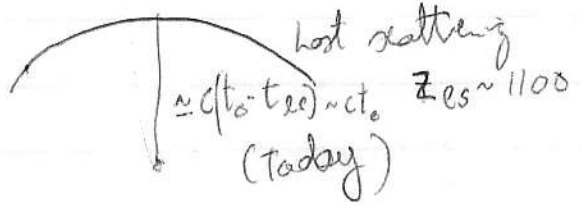 Last scattering
≃ c(t₀ - t_ls) ~ ct₀ z_ls ~ 1100
(Today)